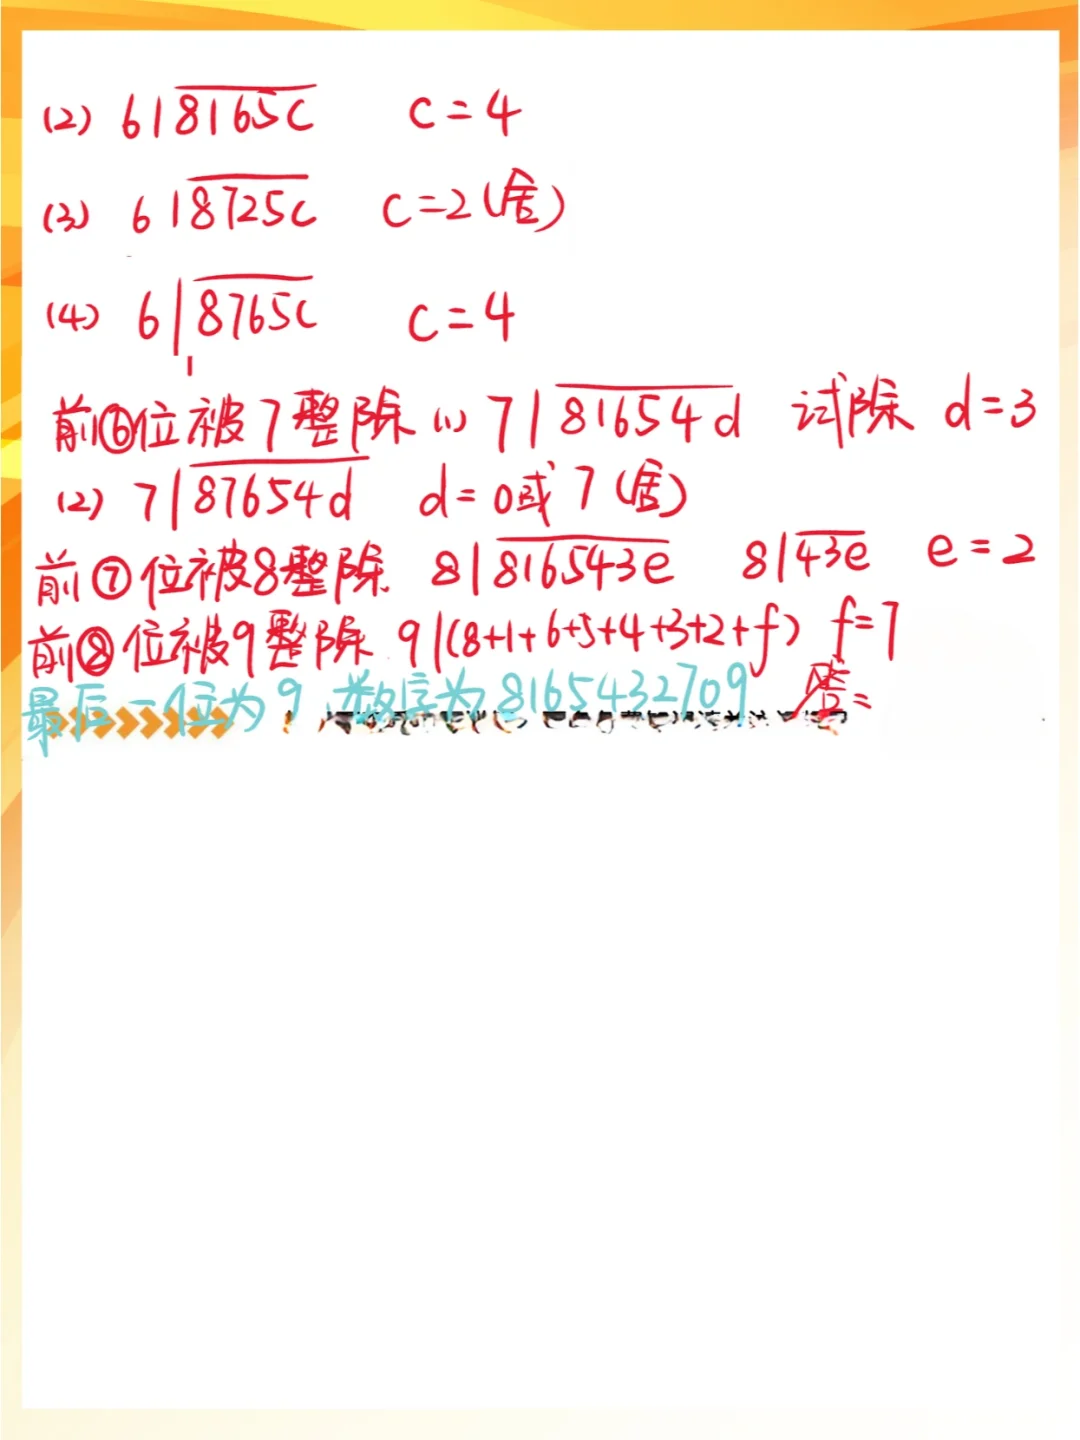 (2) 6|8165c c=4
(3) 6|8725c c=2(舍)
(4) 6|8765c c=4
前⑥位被7整除 (1) 7|81654d 试除 d=3
(2) 7|87654d d=0或7(舍)
前⑦位被8整除 8|816543e 8|43e e=2
前⑧位被9整除 9|(8+1+6+5+4+3+2+f) f=7
最后一位为9,数字为8165432709 答=